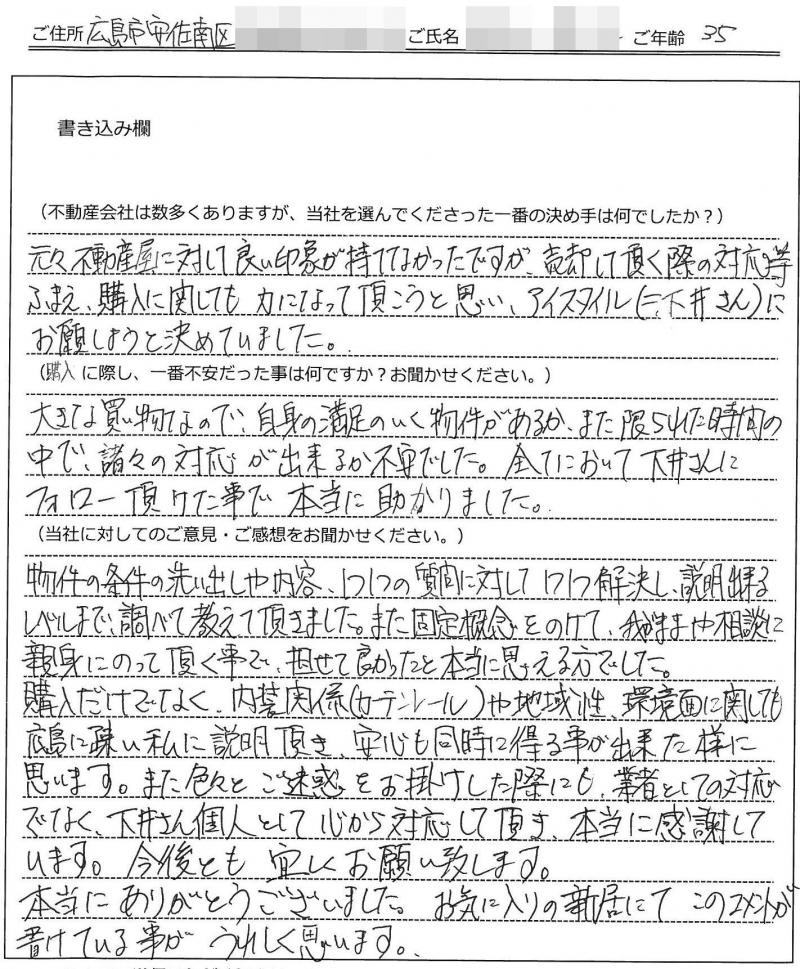 ご住所 広島市安佐南区 ご氏名 ご年齢 35
書き込み欄
(不動産会社は数多くありますが、当社を選んでくださった一番の決め手は何でしたか?)
元々不動産屋に対して良い印象が持ててなかったですが、売却して頂く際の対応等
ふまえ、購入に関しても力になって頂こうと思い、アイスタイル(下井さん)に
お願しようと決めていました。
(購入に際し、一番不安だった事は何ですか?お聞かせください。)
大きな買い物なので、自身の満足のいく物件があるか、また限られた時間の
中で、諸々の対応が出来るか不安でした。全てにおいて下井さんに
フォロー頂けた事で本当に助かりました。
(当社に対してのご意見・ご感想をお聞かせください。)
物件の条件の洗い出しや内容、1つ1つの質問に対して1つ1つ解決し、説明出来る
レベルまで、調べて教えて頂きました。また固定概念をのけて、我がままや相談に
親身にのって頂く事で、担せて良かったと本当に思える方でした。
購入だけでなく、内装関係(カーテンレール)や地域性、環境面に関しても
広島に疎い私に説明頂き、安心も同時に得る事が出来た様に
思います。また色々とご迷惑をお掛けした際にも、業者としての対応
でなく、下井さん個人として心から対応して頂き、本当に感謝して
います。今後とも宜しくお願い致します。
本当にありがとうございました。お気に入りの新居にてこのコメントが
書けている事がうれしく思います。